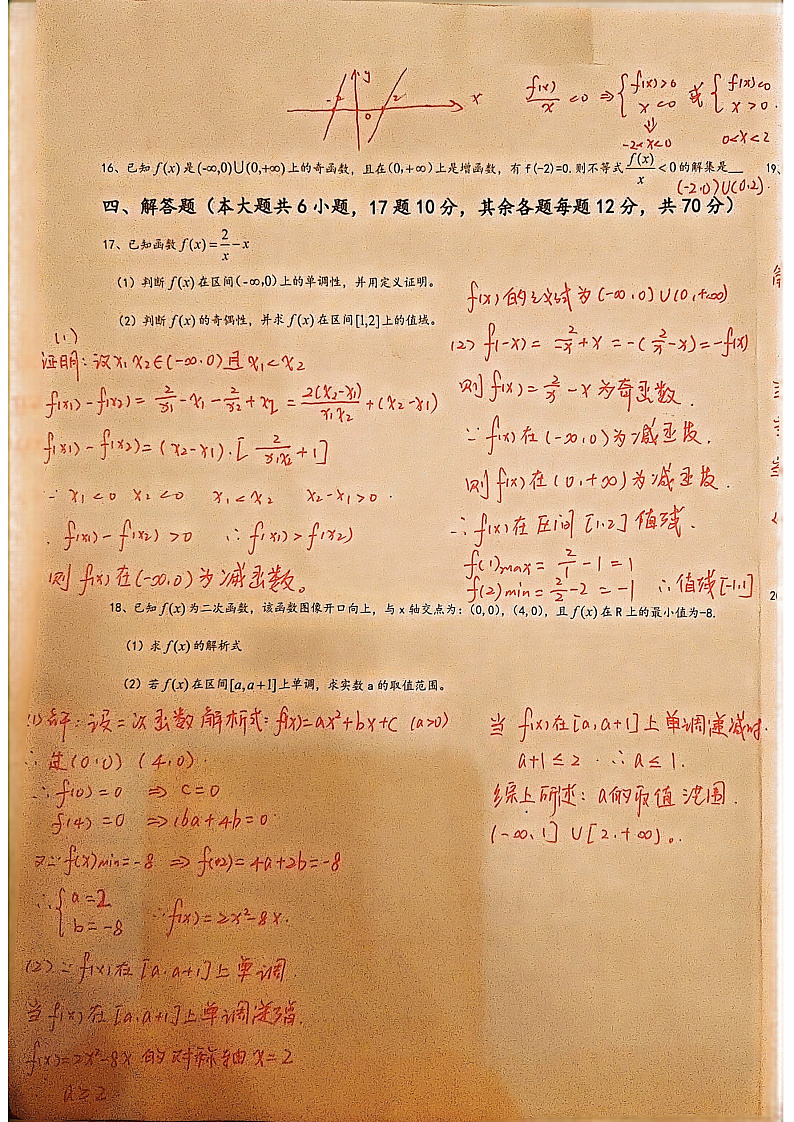 y
-2 0 2 x
f(x)/x <0 ⇒ { f(x)>0 x<0 或 { f(x)<0 x>0.
⇓
-2<x<0 0<x<2
16、已知 f(x) 是(-∞,0)∪(0,+∞)上的奇函数，且在(0,+∞)上是增函数，有 f(-2)=0.则不等式 f(x)/x <0 的解集是__
19、
(-2,0)∪(0,2).
四、解答题（本大题共6小题，17题10分，其余各题每题12分，共70分）
17、已知函数 f(x)=2/x-x
（1）判断 f(x) 在区间(-∞,0)上的单调性，并用定义证明。
（2）判断 f(x) 的奇偶性，并求 f(x) 在区间[1,2]上的值域。
(1)
证明：设x₁ x₂∈(-∞,0)且x₁<x₂
f(x₁)-f(x₂)= 2/x₁-x₁-2/x₂+x₂ = 2(x₂-x₁)/x₁x₂+(x₂-x₁)
f(x₁)-f(x₂)=(x₂-x₁)·[2/x₁x₂+1]
∵ x₁<0 x₂<0 x₁<x₂ x₂-x₁>0.
f(x₁)-f(x₂)>0 ∴f(x₁)>f(x₂)
则 f(x)在(-∞,0)为减函数。
f(x)的定义域为(-∞,0)∪(0,+∞)
(2) f(-x)= 2/-x+x=-(2/x-x)=-f(x)
则f(x)=2/x-x为奇函数.
∵f(x)在(-∞,0)为减函数.
则f(x)在(0,+∞)为减函数.
∴f(x)在区间[1,2]值域.
f(1)max=2/1-1=1
f(2)min=2/2-2=-1 ∴值域[-1,1]
18、已知 f(x) 为二次函数，该函数图像开口向上，与x轴交点为：(0,0)，(4,0)，且 f(x) 在R上的最小值为-8.
20
（1）求 f(x) 的解析式
（2）若 f(x) 在区间[a,a+1]上单调，求实数a的取值范围。
(1)解：设二次函数解析式：f(x)=ax²+bx+c (a>0)
∴过(0,0) (4,0)
∴f(0)=0 ⇒ c=0
f(4)=0 ⇒16a+4b=0
又∵f(x)min=-8 ⇒ f(2)=4a+2b=-8
∴{ a=2 b=-8 ∴f(x)=2x²-8x.
(2)∵f(x)在[a,a+1]上单调.
当f(x)在[a,a+1]上单调递增.
f(x)=2x²-8x的对称轴x=2
a≥2
当f(x)在[a,a+1]上单调递减时.
a+1≤2 . ∴a≤1.
综上所述：a的取值范围.
(-∞,1]∪[2,+∞)。